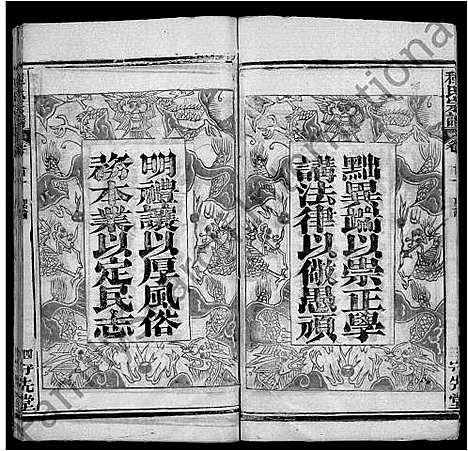 程氏宗譜
卷首一
聖諭
黜異端以崇正學
講法律以儆愚頑
三
守先堂
明禮讓以厚風俗
務本業以定民志
四
守先堂